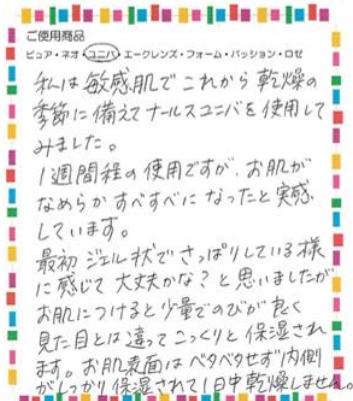 ご使用商品
ピュア・ネオ・ユニバ・エークレンズ・フォーム・パッション・ロゼ
私は敏感肌でこれから乾燥の
季節に備えてナールスユニバを使用して
みました。
1週間程の使用ですが、お肌が
なめらかすべすべになったと実感
しています。
最初ジェル状でさっぱりしている様
に感じて大丈夫かな？と思いましたが
お肌につけると少量でのびが良く
見た目とは違ってこっくりと保湿され
ます。お肌表面はベタベタせず内側
がしっかり保湿されて1日中乾燥しません。